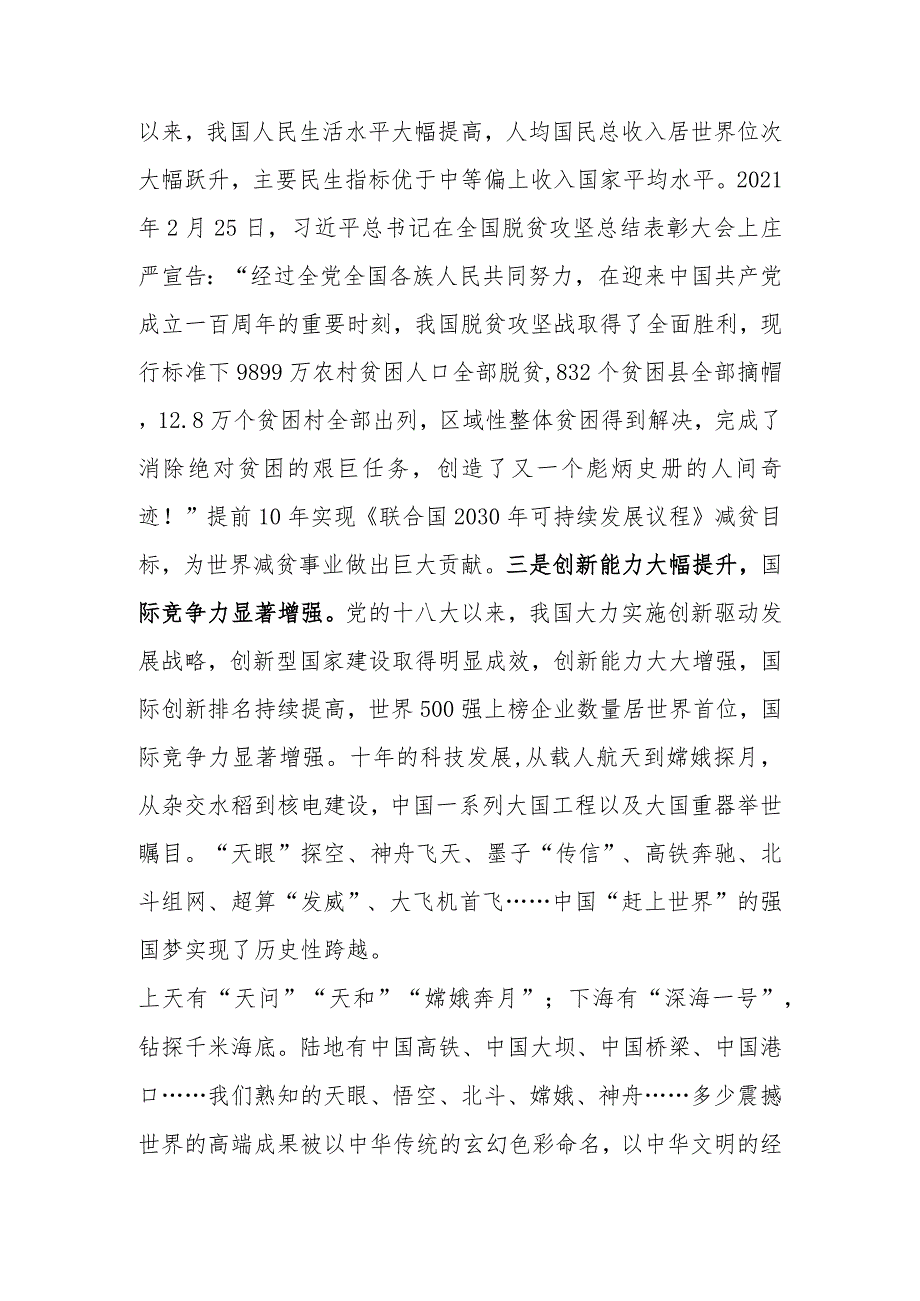 以来，我国人民生活水平大幅提高，人均国民总收入居世界位次
大幅跃升，主要民生指标优于中等偏上收入国家平均水平。2021
年 2 月 25 日，习近平总书记在全国脱贫攻坚总结表彰大会上庄
严宣告：“经过全党全国各族人民共同努力，在迎来中国共产党
成立一百周年的重要时刻，我国脱贫攻坚战取得了全面胜利，现
行标准下 9899 万农村贫困人口全部脱贫,832 个贫困县全部摘帽
，12.8 万个贫困村全部出列，区域性整体贫困得到解决，完成了
消除绝对贫困的艰巨任务，创造了又一个彪炳史册的人间奇
迹！”提前 10 年实现《联合国 2030 年可持续发展议程》减贫目
标，为世界减贫事业做出巨大贡献。三是创新能力大幅提升，国
际竞争力显著增强。党的十八大以来，我国大力实施创新驱动发
展战略，创新型国家建设取得明显成效，创新能力大大增强，国
际创新排名持续提高，世界 500 强上榜企业数量居世界首位，国
际竞争力显著增强。十年的科技发展,从载人航天到嫦娥探月，
从杂交水稻到核电建设，中国一系列大国工程以及大国重器举世
瞩目。“天眼”探空、神舟飞天、墨子“传信”、高铁奔驰、北
斗组网、超算“发威”、大飞机首飞……中国“赶上世界”的强
国梦实现了历史性跨越。
上天有“天问”“天和”“嫦娥奔月”；下海有“深海一号”，
钻探千米海底。陆地有中国高铁、中国大坝、中国桥梁、中国港
口……我们熟知的天眼、悟空、北斗、嫦娥、神舟……多少震撼
世界的高端成果被以中华传统的玄幻色彩命名，以中华文明的经